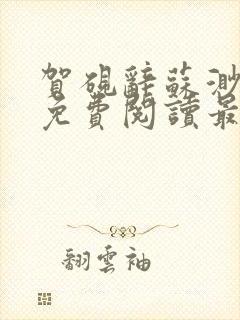 賀硯辭蘇渺
免費閱讀最
翻雲袖